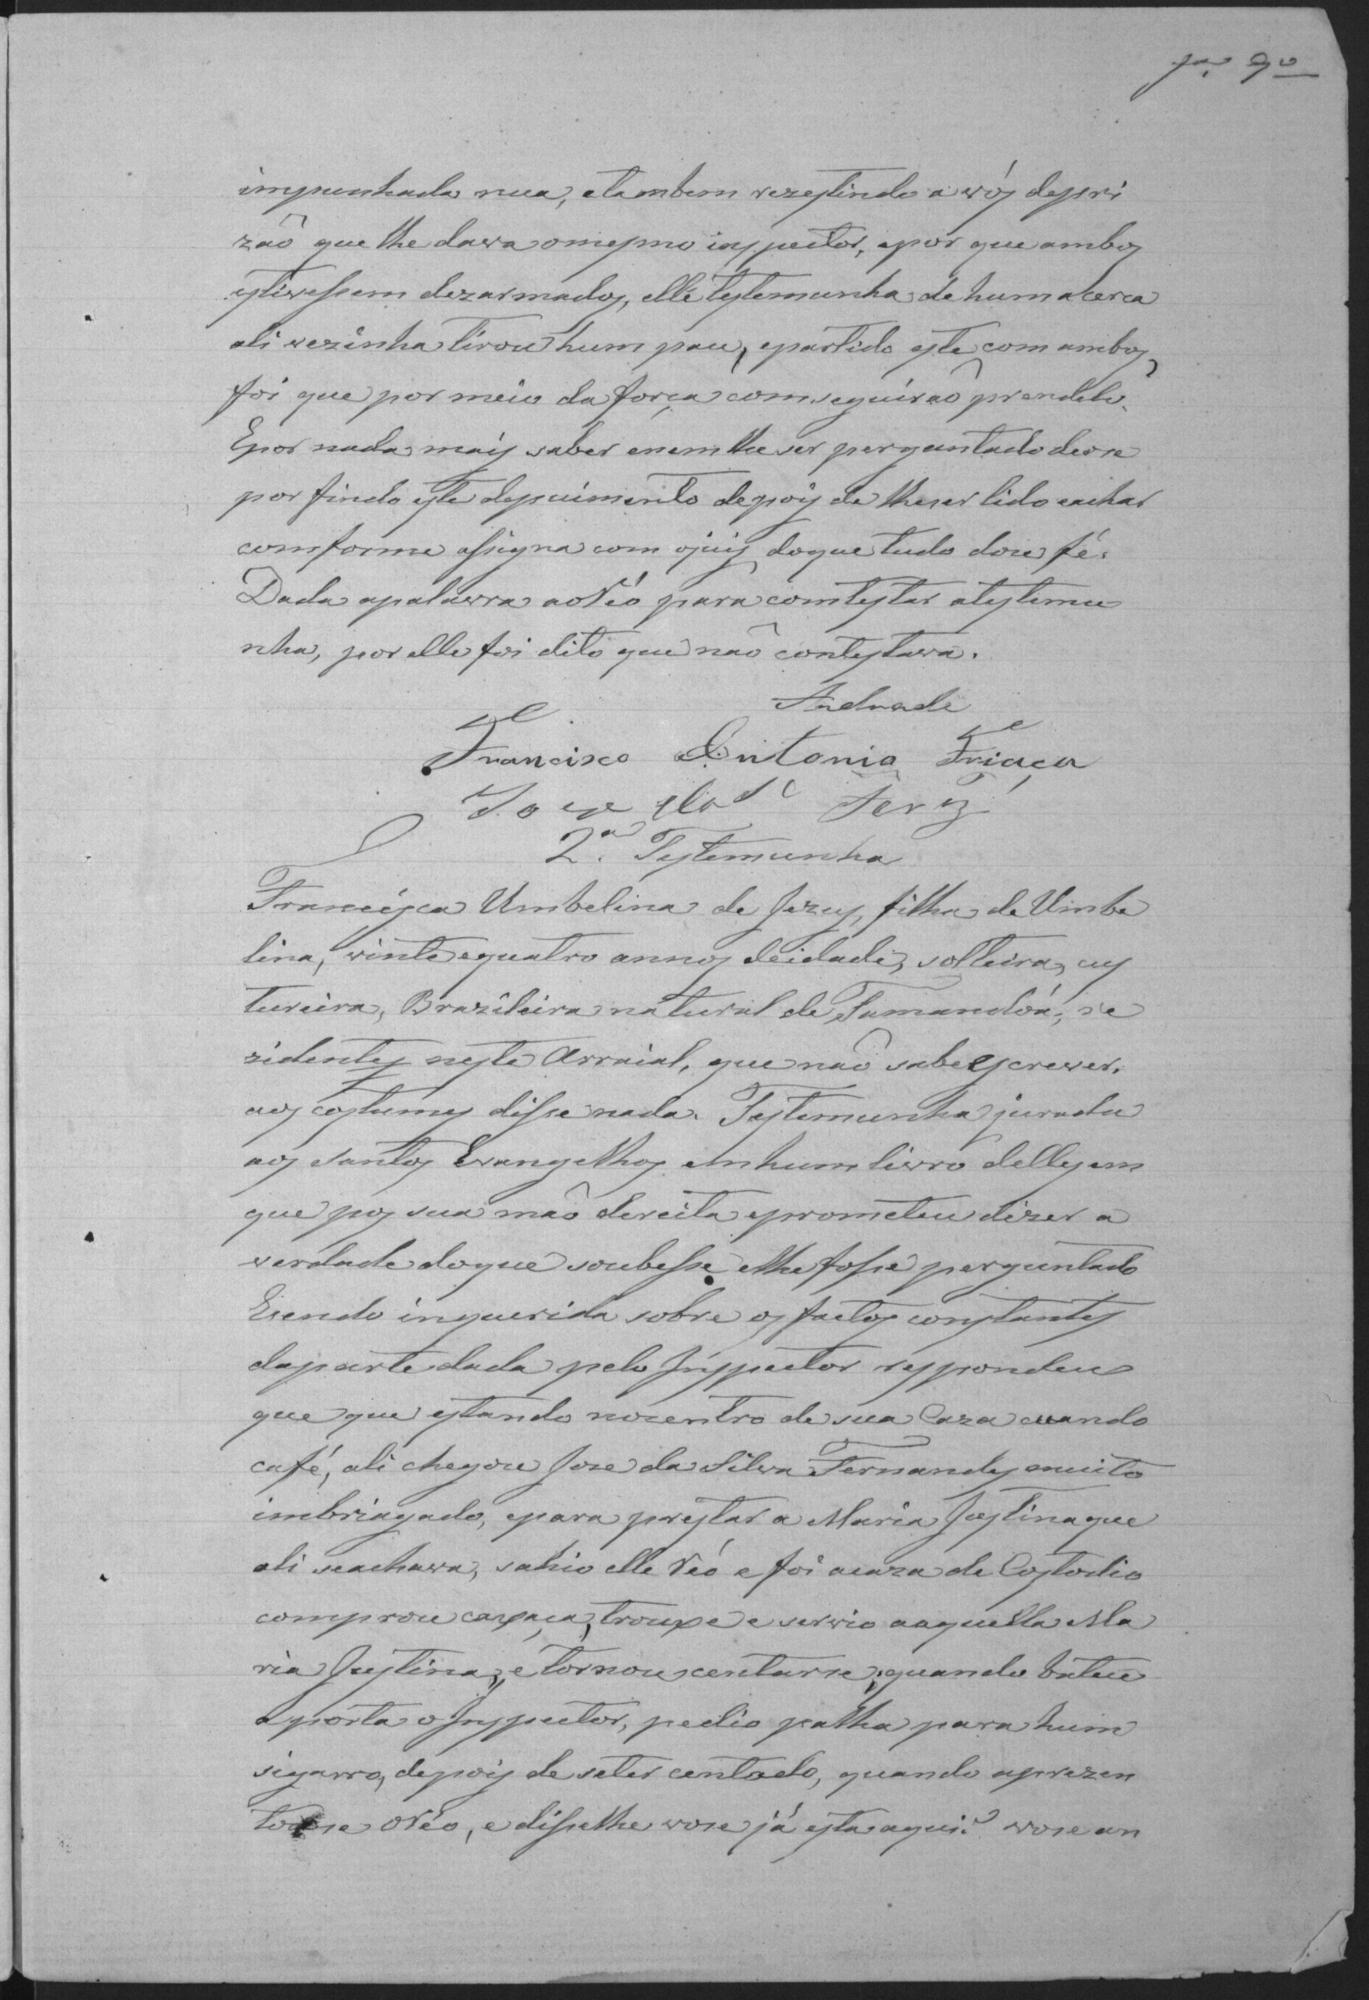 impunhada nua, etambem rezestindo a vós depri
zaõ que lhe dava omesmo inspector, epor que ambos
estivessem dezarmados, elle testemunha de huma cerca
ali vezinha tirou hum pau, epartido este com ambos,
foi que por meio da força comseguiraõ prendelo.
Epor nada mais saber enem lhe ser perguntado deose
por findo este depuimento depois de lheser lido eachar
comforme assigna com ojuis doque tudo dou fé.
Dada apalavra aoRéo para comtestar atestemu
nha, por elle foi dito que naõ contestava.
Andrade
Francisco Antonio Friaça
Jose da Sª Ferz
2ª Testemunha
Francisca Umbelina de Jezus, filha de Umbe
lina, vinte equatro annos deidade, solteira, cus
tureira, Brazileira natural de Tamandoá, re
zidentes neste Arraial, que naõ sabe escrever,
aos costumes disse nada. Testemunha jurada
aos Santos Evangelhos emhum livro delles em
que pos sua maõ dereita eprometeu dizer a
verdade doque soubesse elhe fosse perguntado
Esendo inquerida sobre os factos constantes
daparte dada pelo Inspector respondeu
que que estando nocentro de sua Caza cuando
café, ali chegou Jose da Silva Fernandes muito
imbriagado, epara prestar a Maria Justina que
ali seachava, sahio elle Réo e foi acaza de Costodio
comprou caxaça, trouxe e servio aaquella Ma
ria Justina, e tornou sentarse, quando bateu
aporta o Inspector, pedio palha para hum
sigarro, depois de seter centado, quando aprezen
touse oRéo, e disselhe vose já esta aqui? vose an